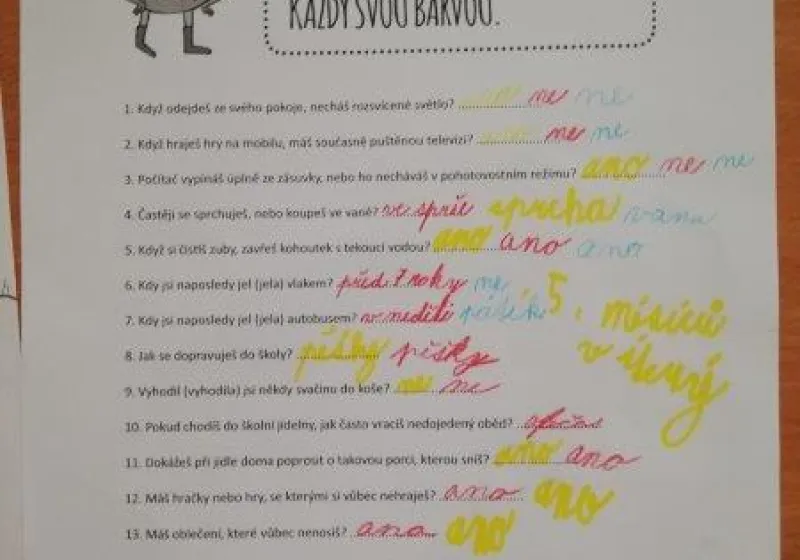 KAŽDÝ SVOU BARVOU.
1. Když odejdeš ze svého pokoje, necháš rozsvícené světlo? ne ne
2. Když hraješ hry na mobilu, máš současně puštěnou televizi? ne ne
3. Počítač vypínáš úplně ze zásuvky, nebo ho necháváš v pohotovostním režimu? ano ne ne
4. Častěji se sprchuješ, nebo koupeš ve vaně? ve sprše sprcha vana
5. Když si čistíš zuby, zavřeš kohoutek s tekoucí vodou? ano ano ano
6. Kdy jsi naposledy jel (jela) vlakem? před 7 roky ne 5.
7. Kdy jsi naposledy jel (jela) autobusem? v neděli pátek měsíců
8. Jak se dopravuješ do školy? pěšky pěšky v úterý
9. Vyhodil (vyhodila) jsi někdy svačinu do koše? ne ne
10. Pokud chodíš do školní jídelny, jak často vracíš nedojedený oběd?
11. Dokážeš při jídle doma poprosit o takovou porci, kterou sníš? ano ano
12. Máš hračky nebo hry, se kterými si vůbec nehraješ? ano ano
13. Máš oblečení, které vůbec nenosíš? ano ano